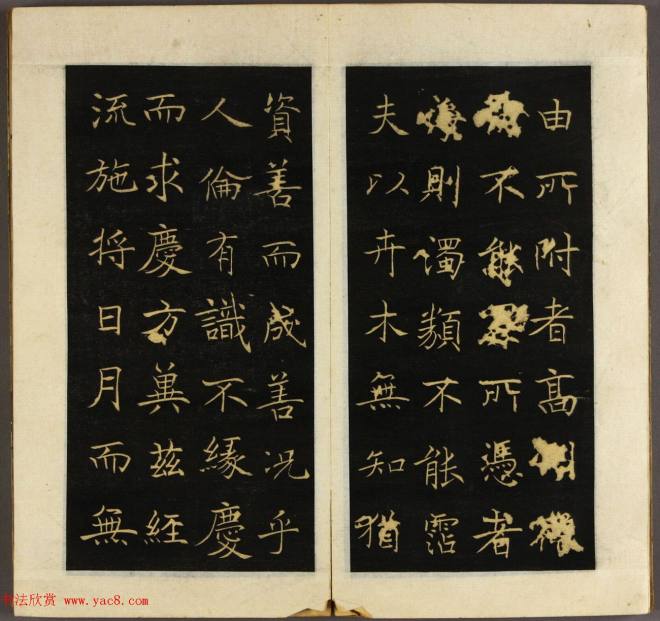 由所附者高
不能所憑者
則濁類不能霑
夫以卉木無知猶
資善而成善況乎
人倫有識不緣慶
而求慶方冀茲經
流施将日月而無
书法欣赏 www.yac8.com